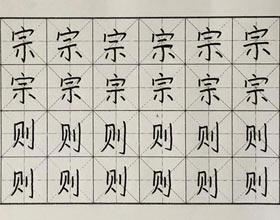 宗宗宗宗宗宗
宗宗宗宗宗宗
则则则则则则
则则则则则则